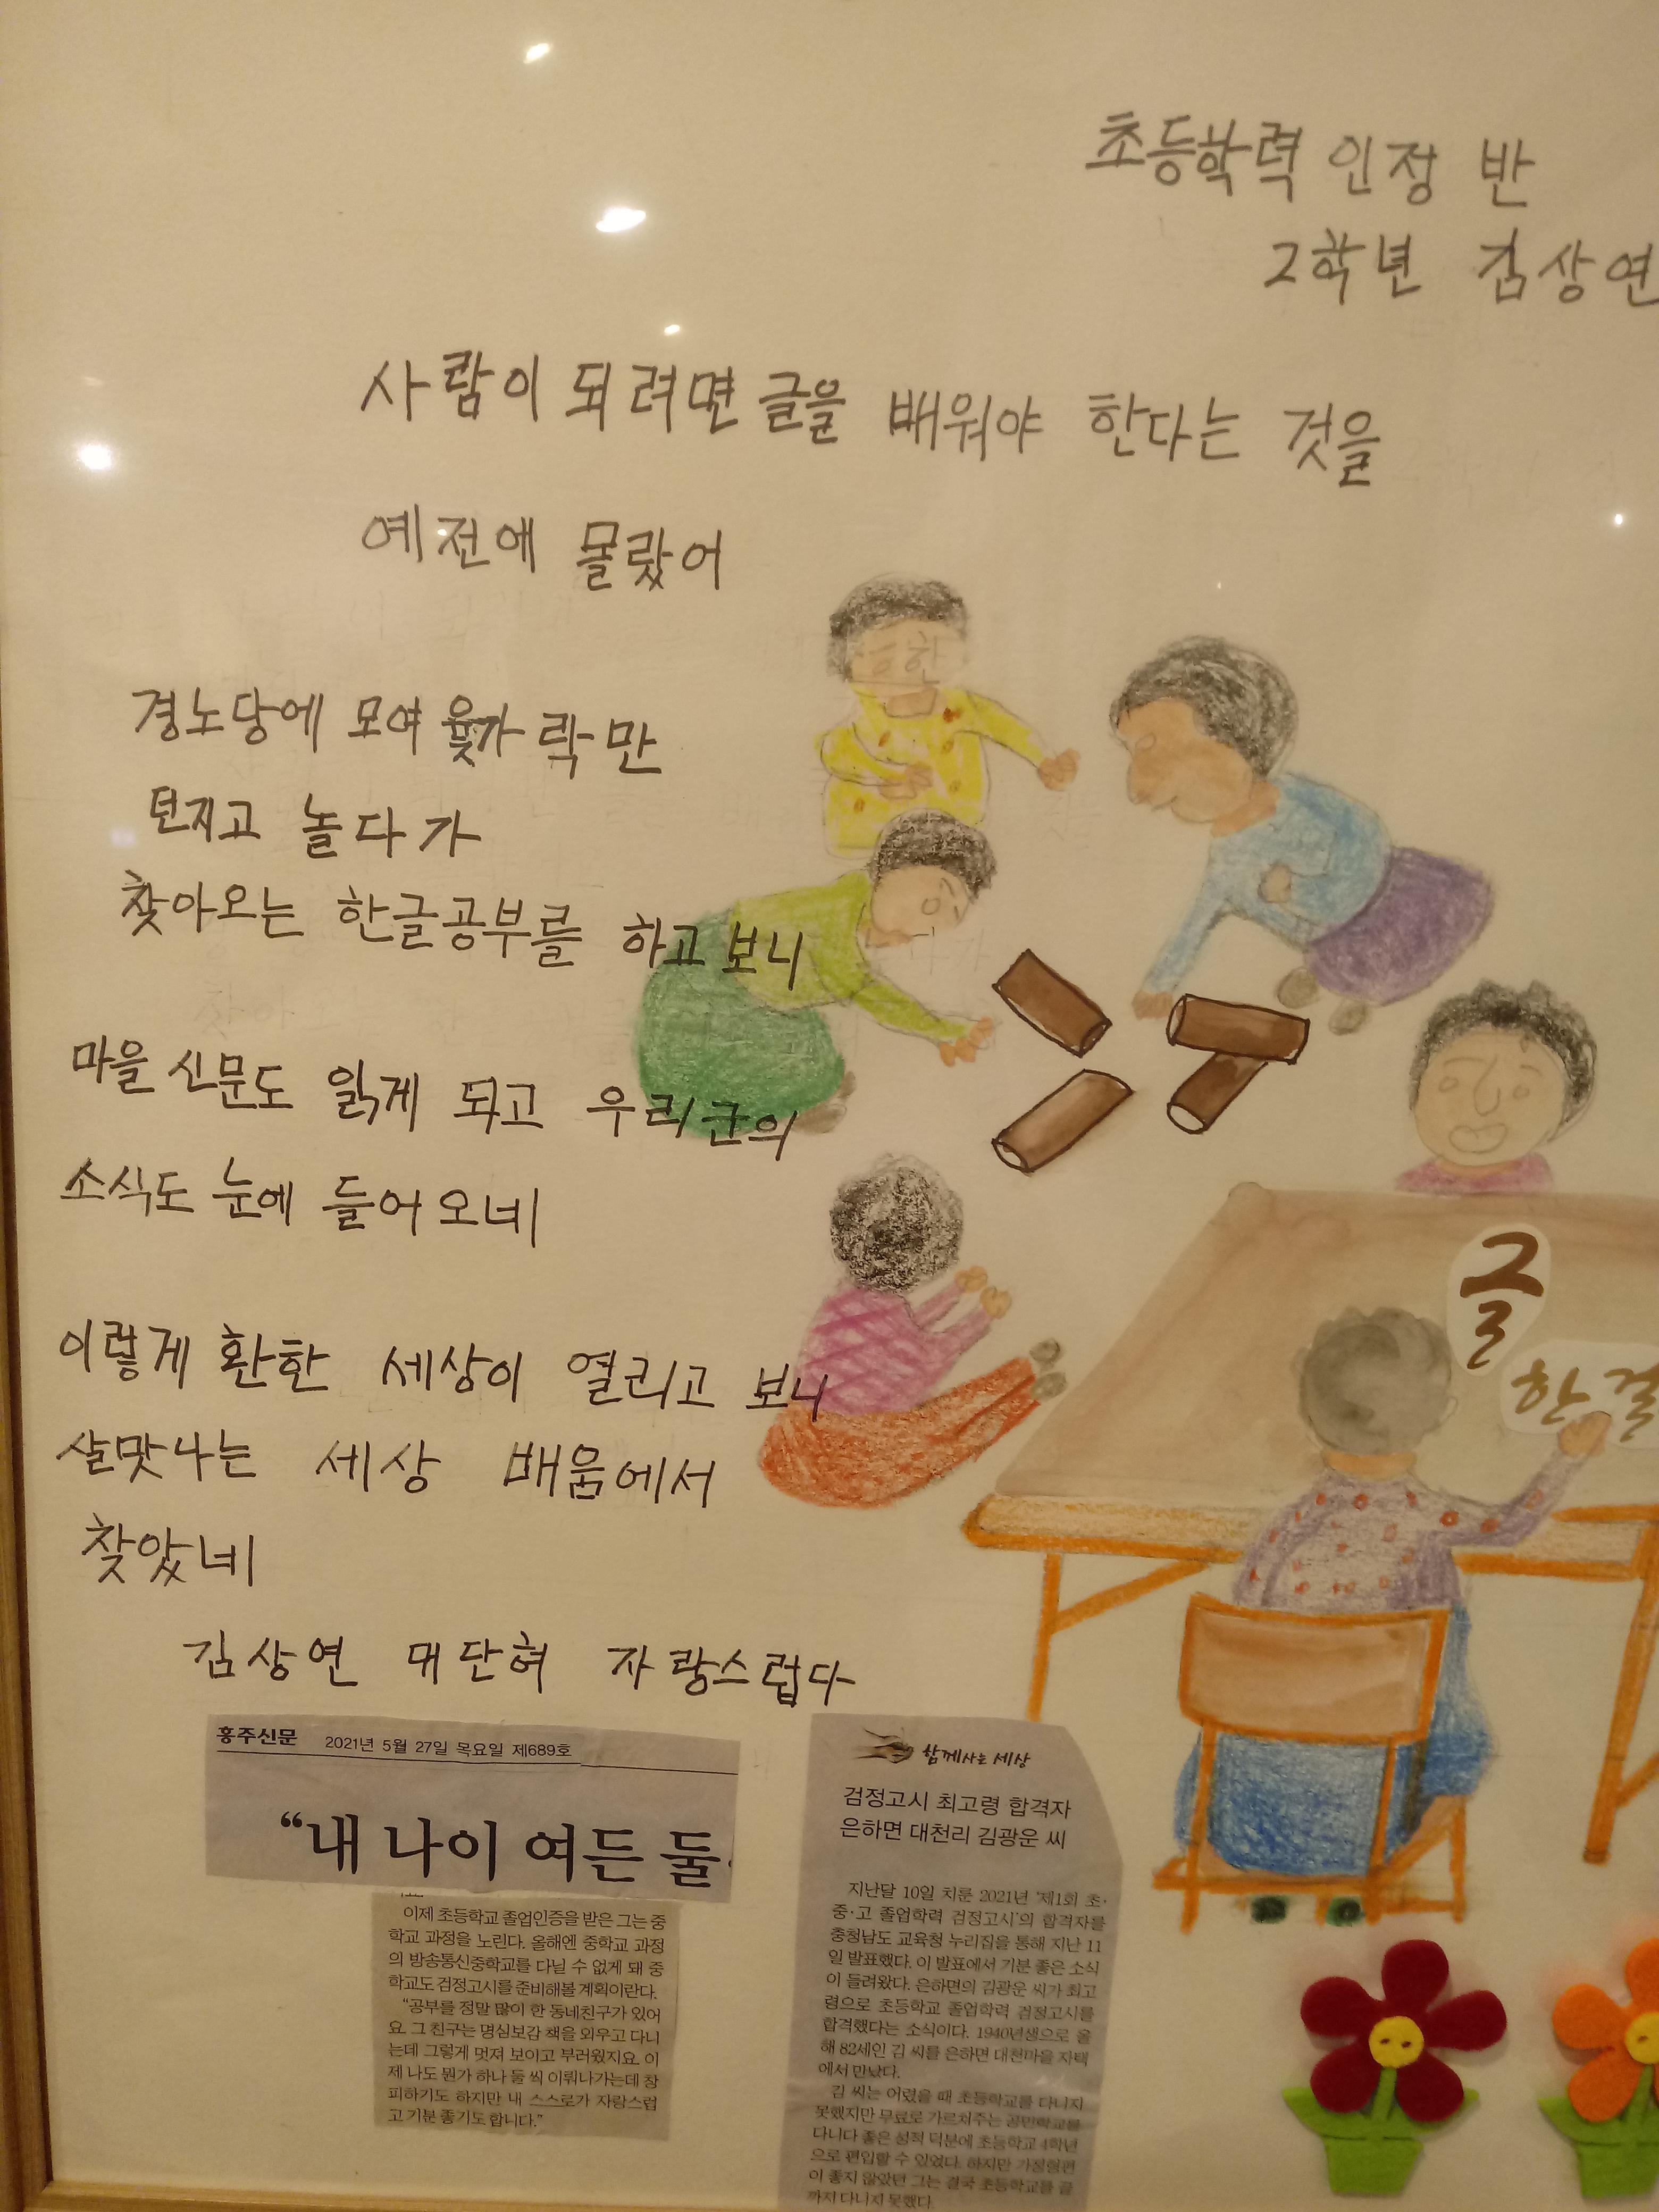 초등학력 인정 반
2학년 김상연
사람이 되려면 글을 배워야 한다는 것을
예전에 몰랐어
경노당에 모여 윷가락만
턴지고 놀다가
찾아오는 한글공부를 하고 보니
마을 신문도 읽게 되고 우리군의
소식도 눈에 들어오네
이렇게 환한 세상이 열리고 보니
살맛나는 세상 배움에서
찾았네
김상연 대단혀 자랑스럽다
글
한글
홍주신문 2021년 5월 27일 목요일 제689호
“내 나이 여든 둘
이제 초등학교 졸업인증을 받은 그는 중
학교 과정을 노린다. 올해엔 중학교 과정
의 방송통신중학교를 다닐 수 없게 돼 중
학교도 검정고시를 준비해볼 계획이란다.
“공부를 정말 많이 한 동네친구가 있어
요. 그 친구는 명심보감 책을 외우고 다니
는데 그렇게 멋져 보이고 부러웠지요. 이
제 나도 뭔가 하나 둘 씩 이뤄나가는데 창
피하기도 하지만 내 스스로가 자랑스럽
고 기분 좋기도 합니다.”
함께사는 세상
검정고시 최고령 합격자
은하면 대천리 김광운 씨
지난달 10일 치룬 2021년 ‘제1회 초·
중·고 졸업학력 검정고시’의 합격자를
충청남도 교육청 누리집을 통해 지난 11
일 발표했다. 이 발표에서 기분 좋은 소식
이 들려왔다. 은하면의 김광운 씨가 최고
령으로 초등학교 졸업학력 검정고시를
합격했다는 소식이다. 1940년생으로 올
해 82세인 김 씨를 은하면 대천마을 자택
에서 만났다.
김 씨는 어렸을 때 초등학교를 다니지
못했지만 무료로 가르쳐주는 공민학교를
다니다 좋은 성적 덕분에 초등학교 4학년
으로 편입할 수 있었다. 하지만 가정형편
이 좋지 않았던 그는 결국 초등학교를 끝
까지 다니지 못했다.